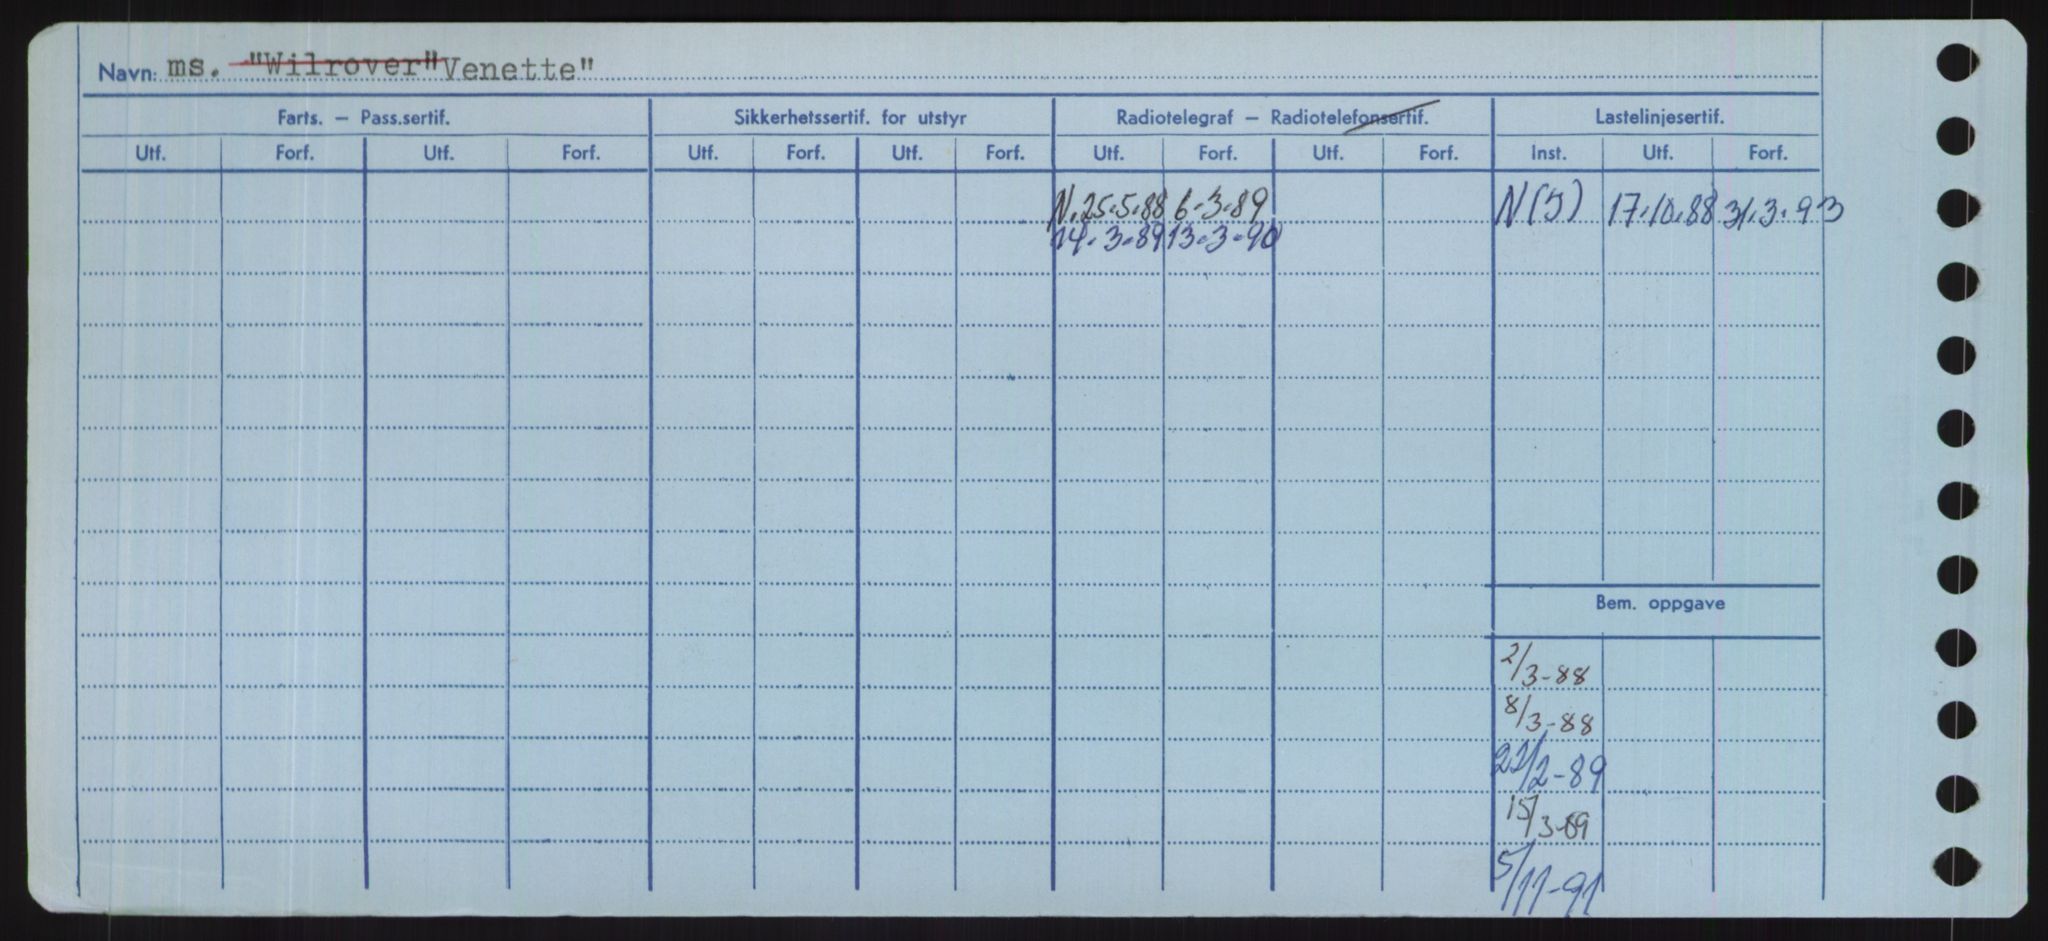 Navn: ms. "Wilrover" Venette"
Farts. — Pass.sertif. Sikkerhetssertif. for utstyr Radiotelegraf — Radiotelefonsertif. Lastelinjesertif.
Utf. Forf. Utf. Forf. Utf. Forf. Utf. Forf. Utf. Forf. Utf. Forf. Inst. Utf. Forf.
N. 25.5.88 6-3-89 17.10.88 31.3.93
14-3-89 13-3-90
Bem. oppgave
2/3-88
8/3-88
15/3-89
5/11-91